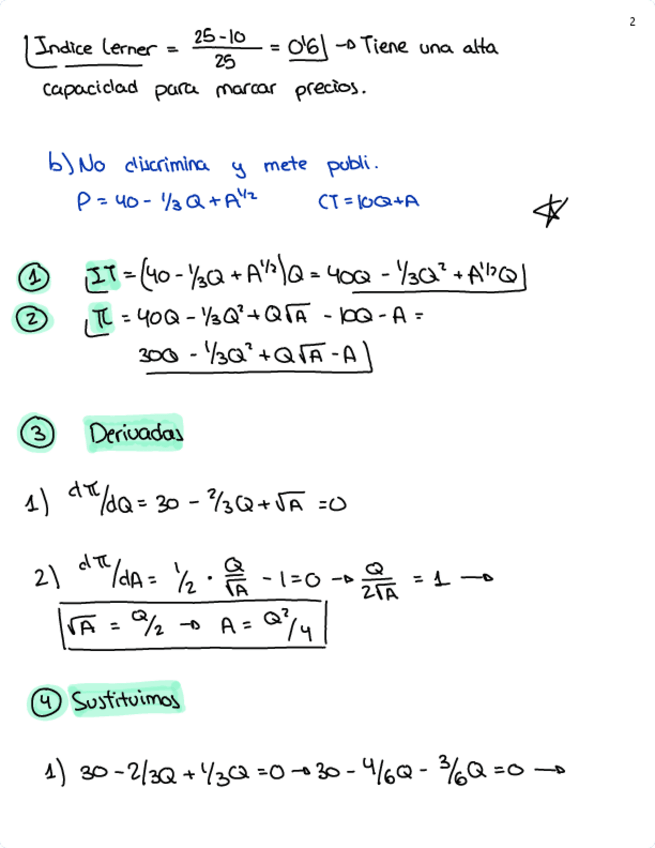 2
Indice Lerner = 25-10/25 = 0'6 → Tiene una alta
capacidad para marcar precios.
b) No discrimina y mete publi.
P = 40 - 1/3 Q + A^1/2 CT = 10Q + A
① IT = (40 - 1/3Q + A^1/2)Q = 40Q - 1/3Q² + A^1/2Q
② π = 40Q - 1/3Q² + Q√A - 10Q - A =
30Q - 1/3Q² + Q√A - A
③ Derivadas
1) dπ/dQ = 30 - 2/3Q + √A = 0
2) dπ/dA = 1/2 · Q/√A - 1 = 0 → Q/2√A = 1 →
√A = Q/2 → A = Q²/4
④ Sustituimos
1) 30 - 2/3Q + 1/3Q = 0 → 30 - 4/6Q - 3/6Q = 0 →